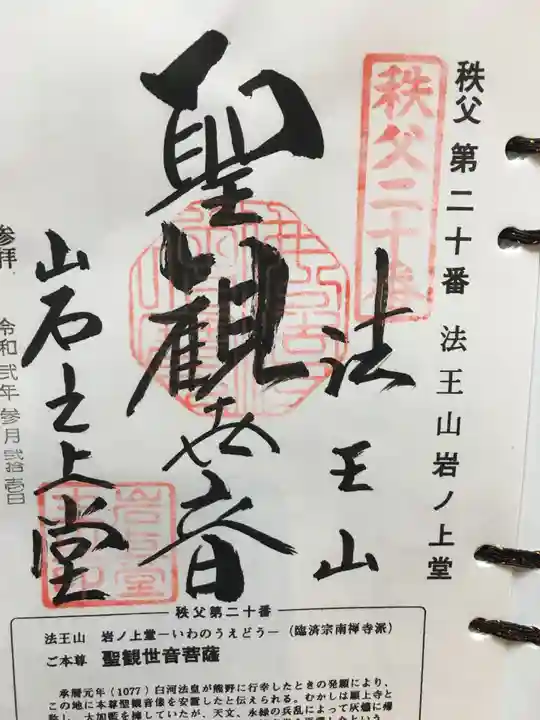 秩父 第二十番 法王山岩ノ上堂
秩父二十番
法王山
聖観世音
岩之上堂
参拝 令和弐年参月弐拾壱日
秩父第二十番
法王山 岩ノ上堂―いわのうえどう―(臨済宗南禅寺派)
ご本尊 聖観世音菩薩
承暦元年(1077)白河法皇が熊野に行幸したときの発願により、
この地に本尊聖観音像を安置したと伝えられる。むかしは願上寺と
称し、大加藍を擁していたが、天文、永緑の兵乱によって灰燼に帰